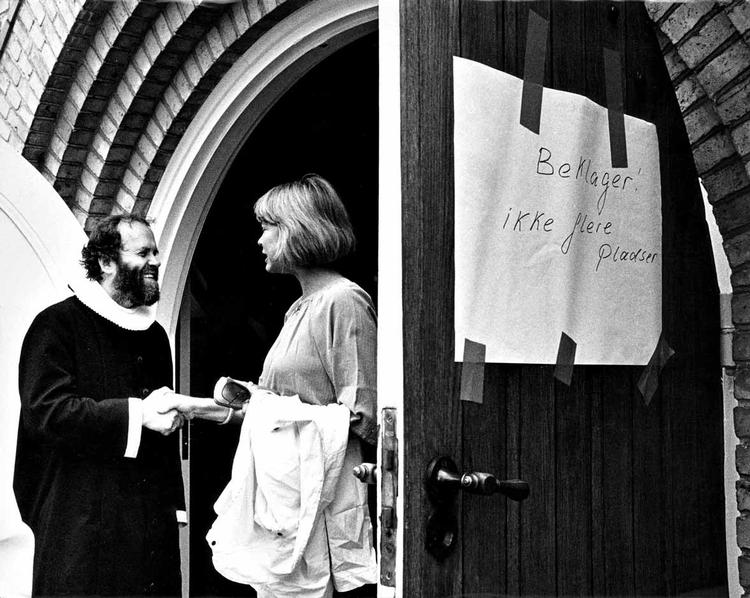 Beklager!
ikke flere
pladser